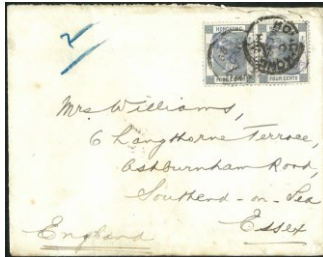 2
HONGKONG
FOUR CENTS
Mrs Williams,
6 Langthorne Terrace,
Ashburnham Road,
Southend-on-Sea
Essex
England